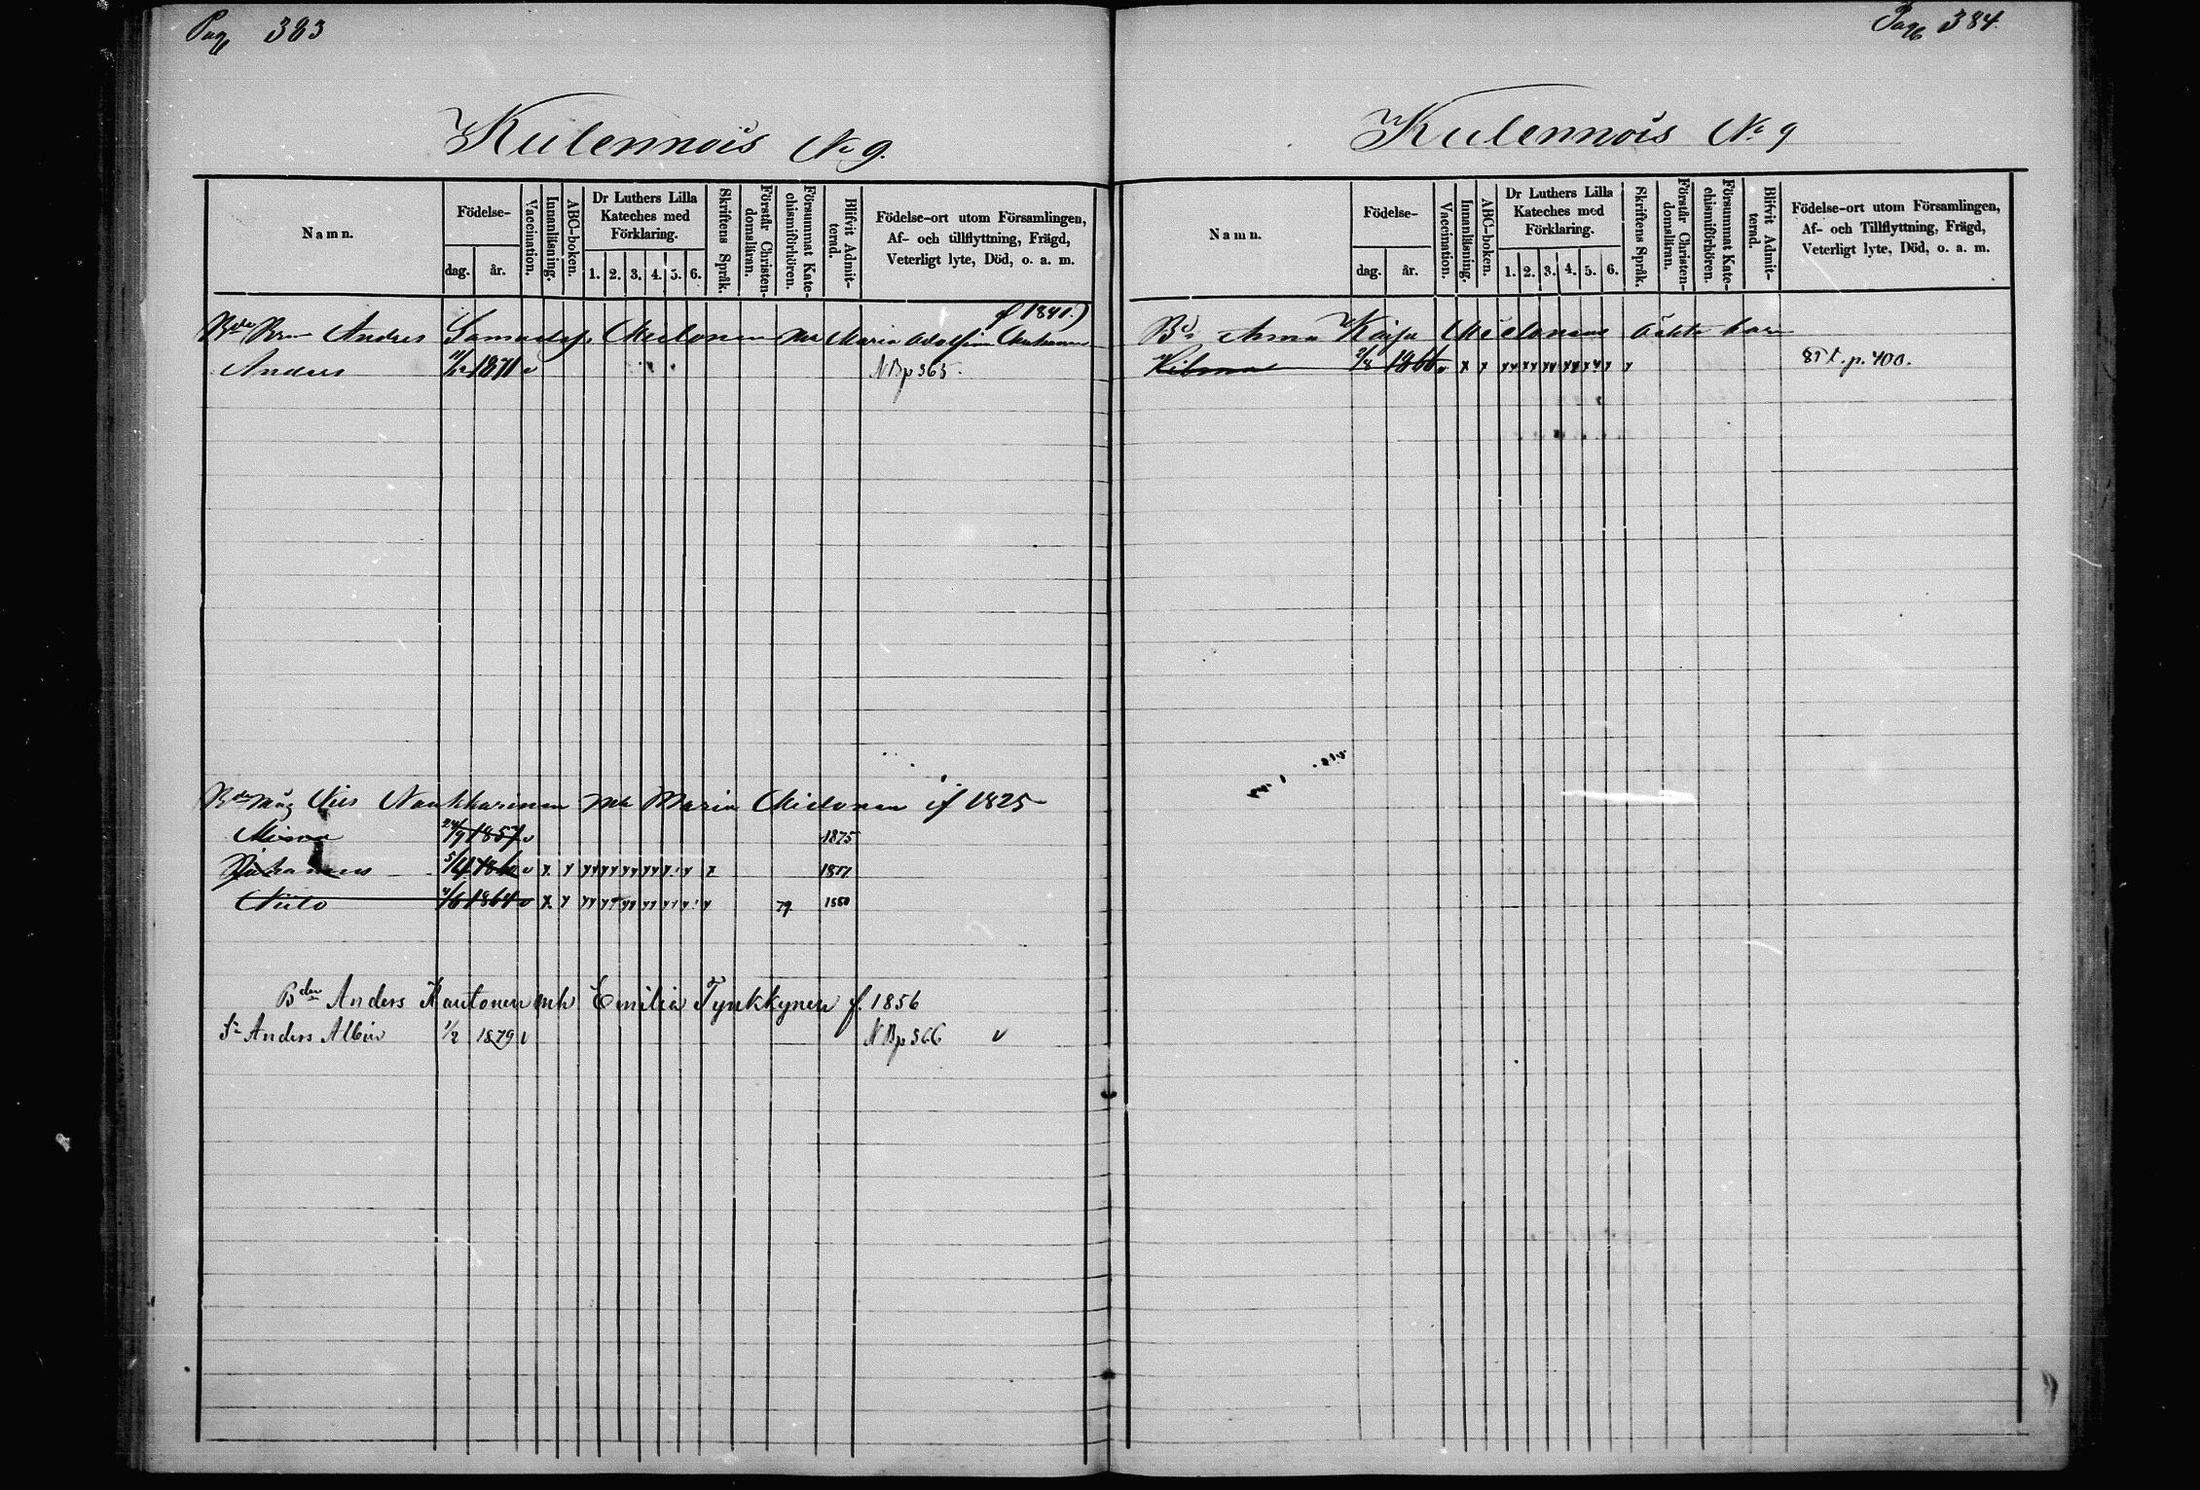 Pag 383
Kulennois No 9.
Namn.
Födelse-
dag.
år.
Vaccination.
Innanläsning.
ABC-boken.
Dr Luthers Lilla
Kateches med
Förklaring.
1. 2. 3. 4. 5. 6.
Skriftens Språk.
Förstår Christen-
domsläran.
Försummat Kate-
chismiförhören.
Blifvit Admit-
terad.
Födelse-ort utom Församlingen,
Af- och tillflyttning, Frägd,
Veterligt lyte, Död, o. a. m.
f 1841.)
Anders Mielonen mh Maria Adolfina
Anders 1871 v NB p 365.
Nils Naukkarinen mh Maria Mielonen if 1825
Minna 24/9 1857 v 1875
Johannes 5/4 v x y 1877
Nilo 4/6 1864 v x y 79 1880
Bden Anders Kautonen mh Emilia Tynkkynen f. 1856
Sn Anders Albin 1/2 1879 v NB p 366 v
Pag 384
Kulennois No 9
Namn.
Födelse-
dag.
år.
Vaccination.
Innanläsning.
ABC-boken.
Dr Luthers Lilla
Kateches med
Förklaring.
1. 2. 3. 4. 5. 6.
Skriftens Språk.
Förstår Christen-
domsläran.
Försummat Kate-
chismiförhören.
Blifvit Admit-
terad.
Födelse-ort utom Församlingen,
Af- och Tillflyttning, Frägd,
Veterligt lyte, Död, o. a. m.
Anna Kaisa Mielonens oäkta barn
Hilma 1866 v x y p. 400.